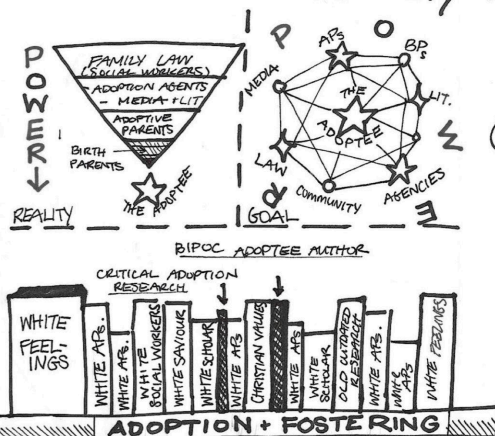 POWER
FAMILY LAW
(SOCIAL WORKERS)
- ADOPTION AGENTS
- MEDIA + LIT
ADOPTIVE
PARENTS
BIRTH
PARENTS
THE ADOPTEE
REALITY
POWER
APs
BPs
MEDIA
LIT.
THE
ADOPTEE
LAW
COMMUNITY
AGENCIES
GOAL
BIPOC ADOPTEE AUTHOR
CRITICAL ADOPTION
RESEARCH
WHITE
FEEL-
INGS
WHITE APs.
WHITE APs.
WHITE
SOCIAL WORKERS
WHITE SAVIOUR
WHITE SCHOLAR
WHITE APs
CHRISTIAN VALUES
WHITE APs
WHITE
SCHOLAR
OLD OUTDATED
RESEARCH
WHITE APs.
WHITE
APs
WHITE FEELINGS
ADOPTION + FOSTERING